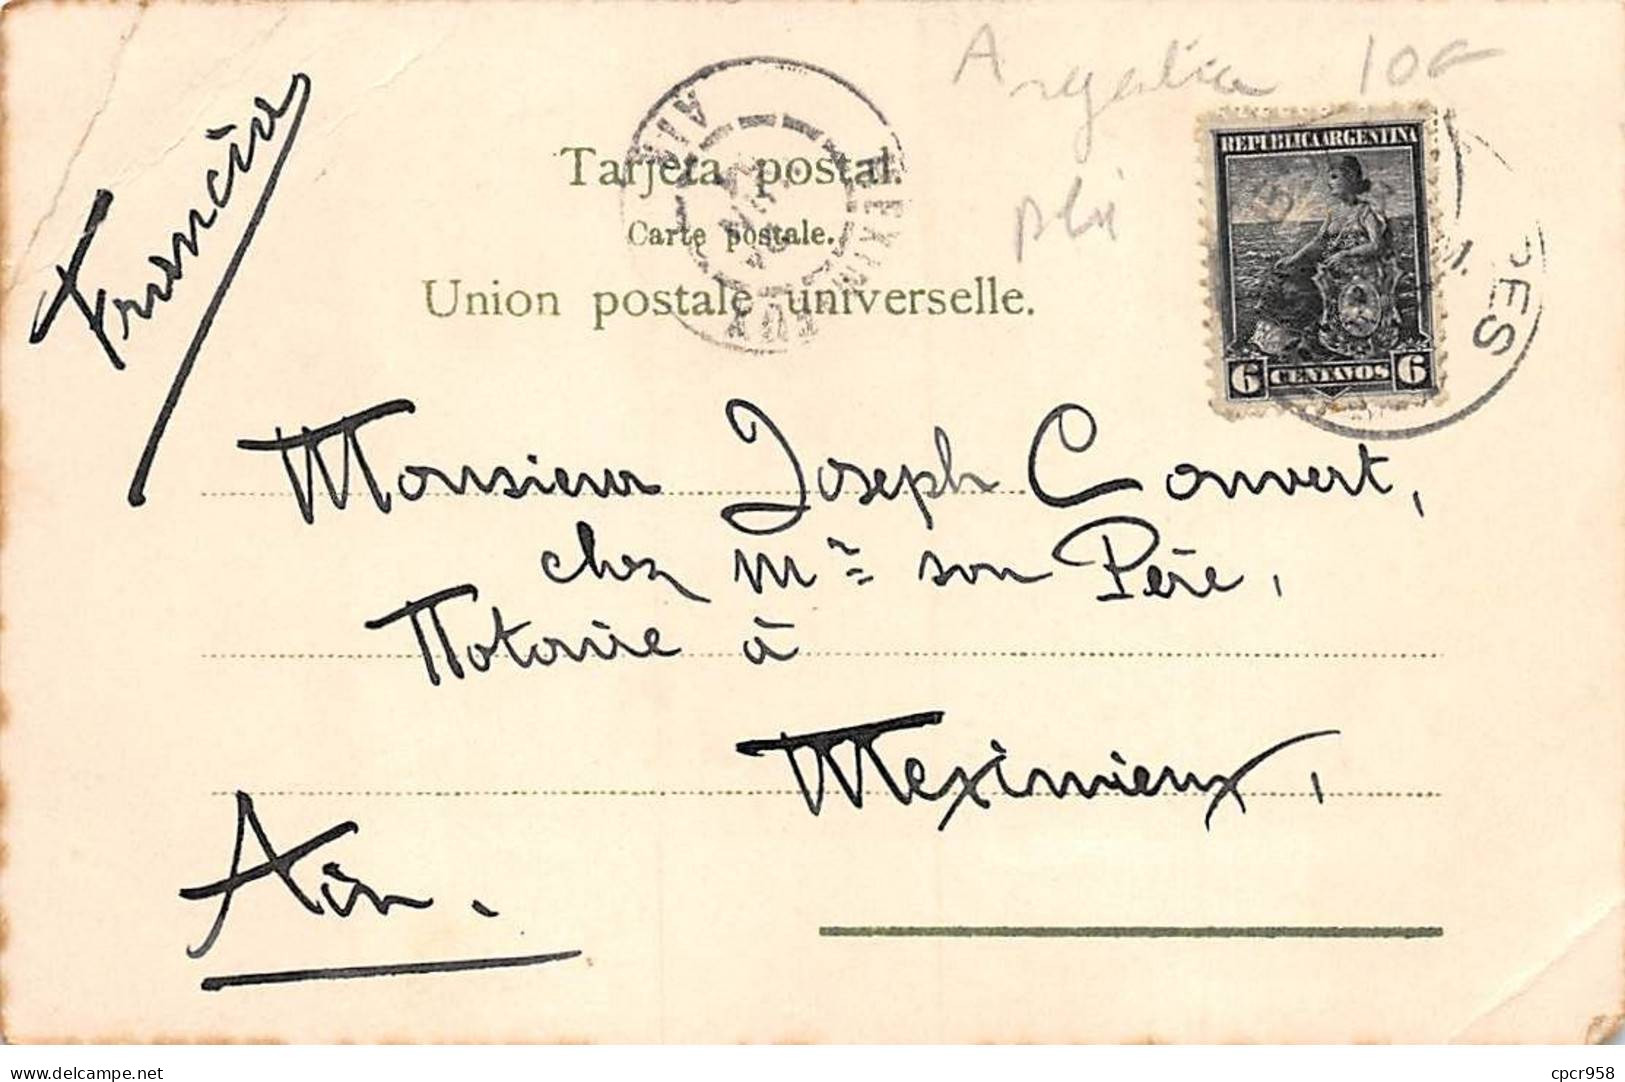 Argentina 10F
plié
Francia
Tarjeta postal.
Carte postale.
Union postale universelle.
REPUBLICA ARGENTINA
6 CENTAVOS 6
AIN
MEXIMIEUX
Monsieur Joseph Convert,
chez Mr son Père,
Notaire à
Meximieux,
Ain.
delcampe.net
cpcr958